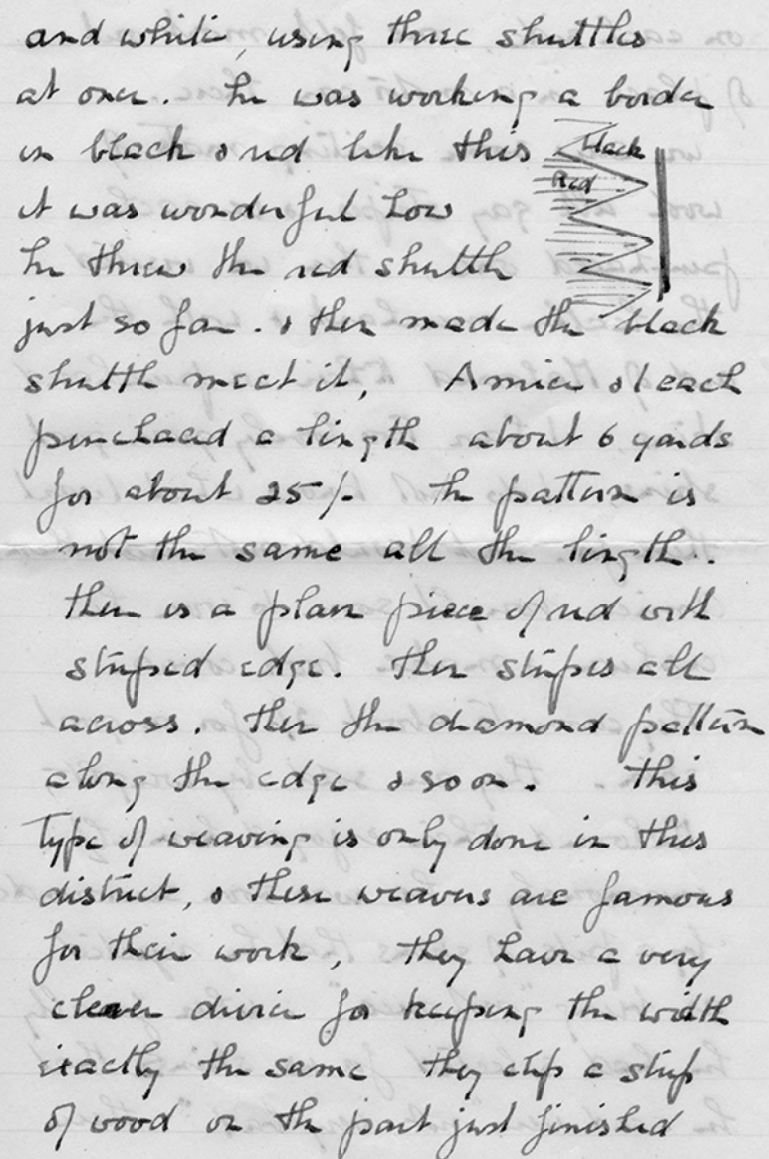 and white, using three shuttles
at once. he was working a border
in black & red like this
black
Red
it was wonderful how
he threw the red shuttle
just so far. & then made the black
shuttle meet it, & I each
purchaced a length about 6 yards
for about 25/- The pattern is
not the same all the length..
there is a plain piece of red with
striped edge. then stripes all
across. then the diamond pattern
along the edge & so on. This
type of weaving is only done in this
district, & these weavers are famous
for their work, they have a very
clever device for keeping the width
exactly the same they clip a strip
of wood on the part just finished